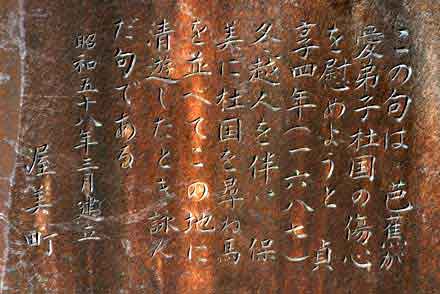 この句は 芭蕉が
愛弟子杜国の傷心
を慰めようと 貞
享四年(一六八七)
久 越人を伴い 保
美に杜国を尋ね馬
を並べてこの地に
清遊したとき 詠ん
だ句である
昭和五十八年三月建立
渥美町